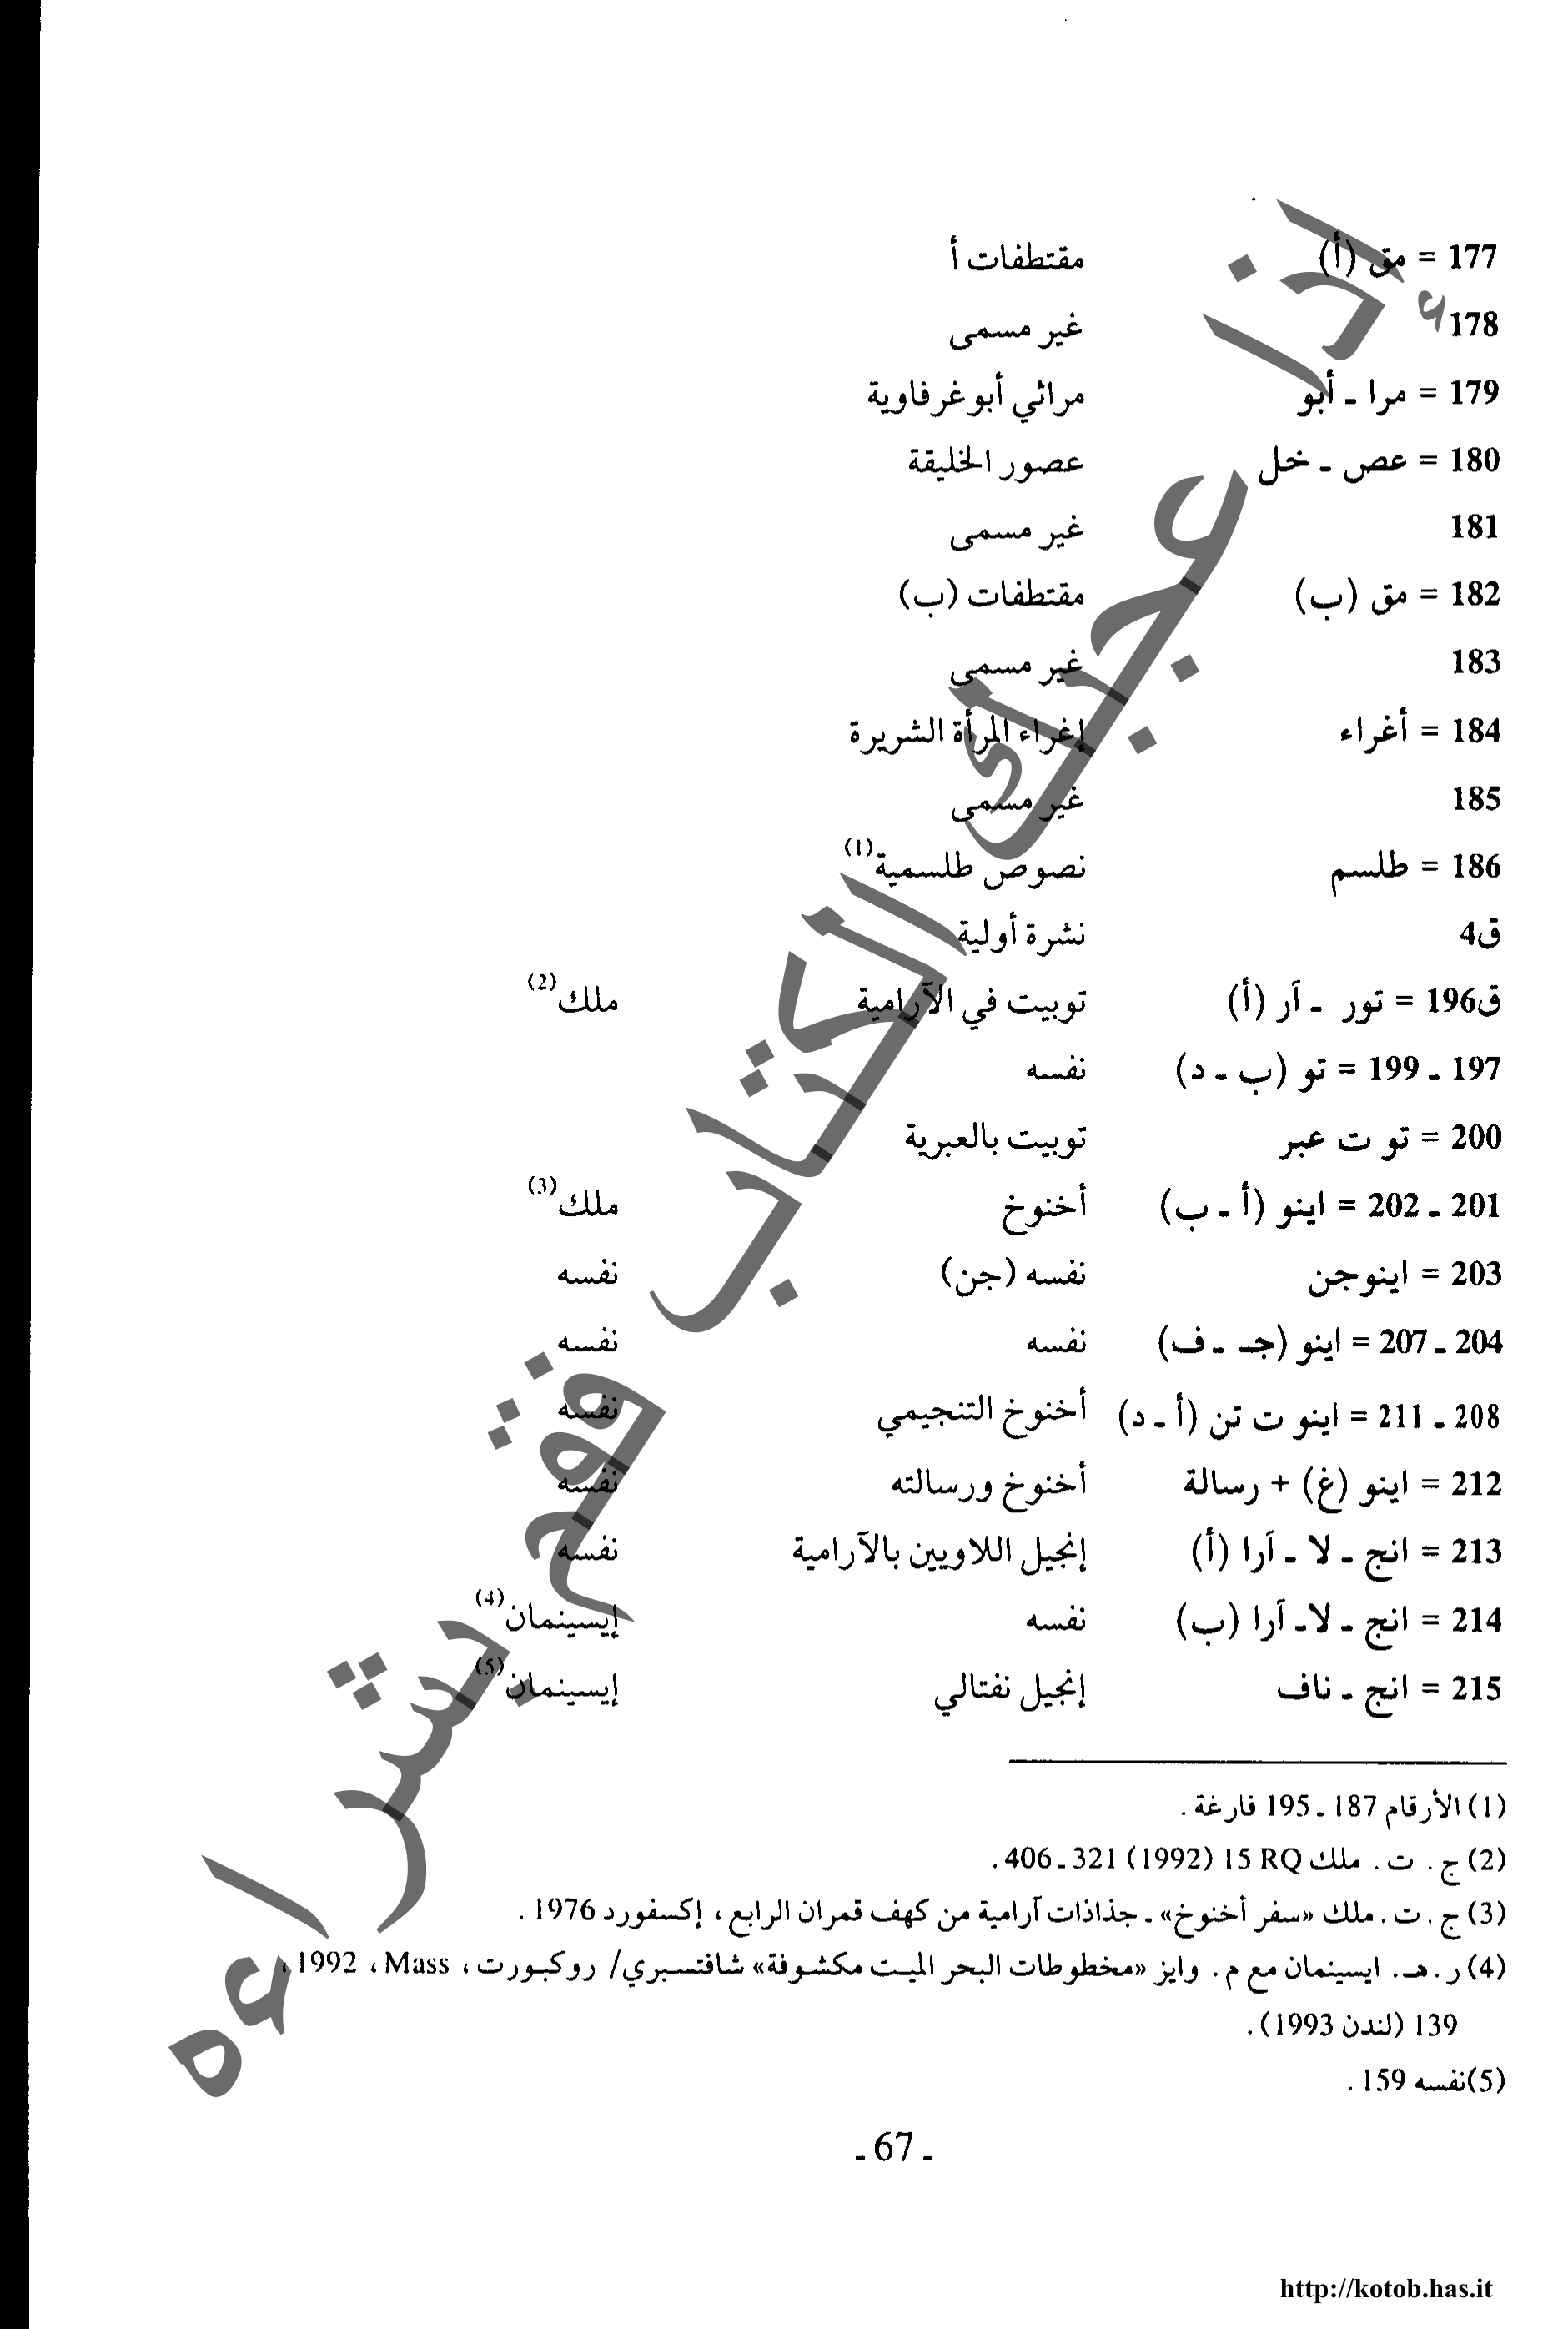 177 = مق (أ) مقتطفات أ
178 غير مسمى
179 = مرا ـ أبو مراثي أبوغرفاوية
180 = عص ـ خل عصور الخليقة
181 غير مسمى
182 = مق (ب) مقتطفات (ب)
183 غير مسمى
184 = أغراء إغراء المرأة الشريرة
185 غير مسمى
186 = طلسم نصوص طلسمية(1)
ق4 نشرة أولية
ق196 = تور ـ آر (أ) توبيت في الآرامية ملك(2)
197 ـ 199 = تو (ب ـ د) نفسه
200 = تو ت عبر توبيت بالعبرية
201 ـ 202 = اينو (أ ـ ب) أخنوخ ملك(3)
203 = اينوجن نفسه (جن) نفسه
204 ـ 207 = اينو (جـ ـ ف) نفسه نفسه
208 ـ 211 = اينو ت تن (أ ـ د) أخنوخ التنجيمي نفسه
212 = اينو (غ) + رسالة أخنوخ ورسالته نفسه
213 = انج ـ لا ـ آرا (أ) إنجيل اللاويين بالآرامية نفسه
214 = انج ـ لاـ آرا (ب) نفسه إيسينمان(4)
215 = انج ـ ناف إنجيل نفتالي إيسينمان(5)
(1) الأرقام 187 ـ 195 فارغة .
(2) ج . ت . ملك RQ 15 (1992) 321 ـ 406 .
(3) ج . ت . ملك «سفر أخنوخ» ـ جذاذات آرامية من كهف قمران الرابع ، إكسفورد 1976 .
(4) ر . هـ . ايسينمان مع م . وايز «مخطوطات البحر الميت مكشوفة» شافتسبري/ روكبورت ، Mass ، 1992 ،
139 (لندن 1993) .
(5)نفسه 159 .
ـ 67 ـ
إذا أعجبك الكتاب فقم بشراءه
http://kotob.has.it